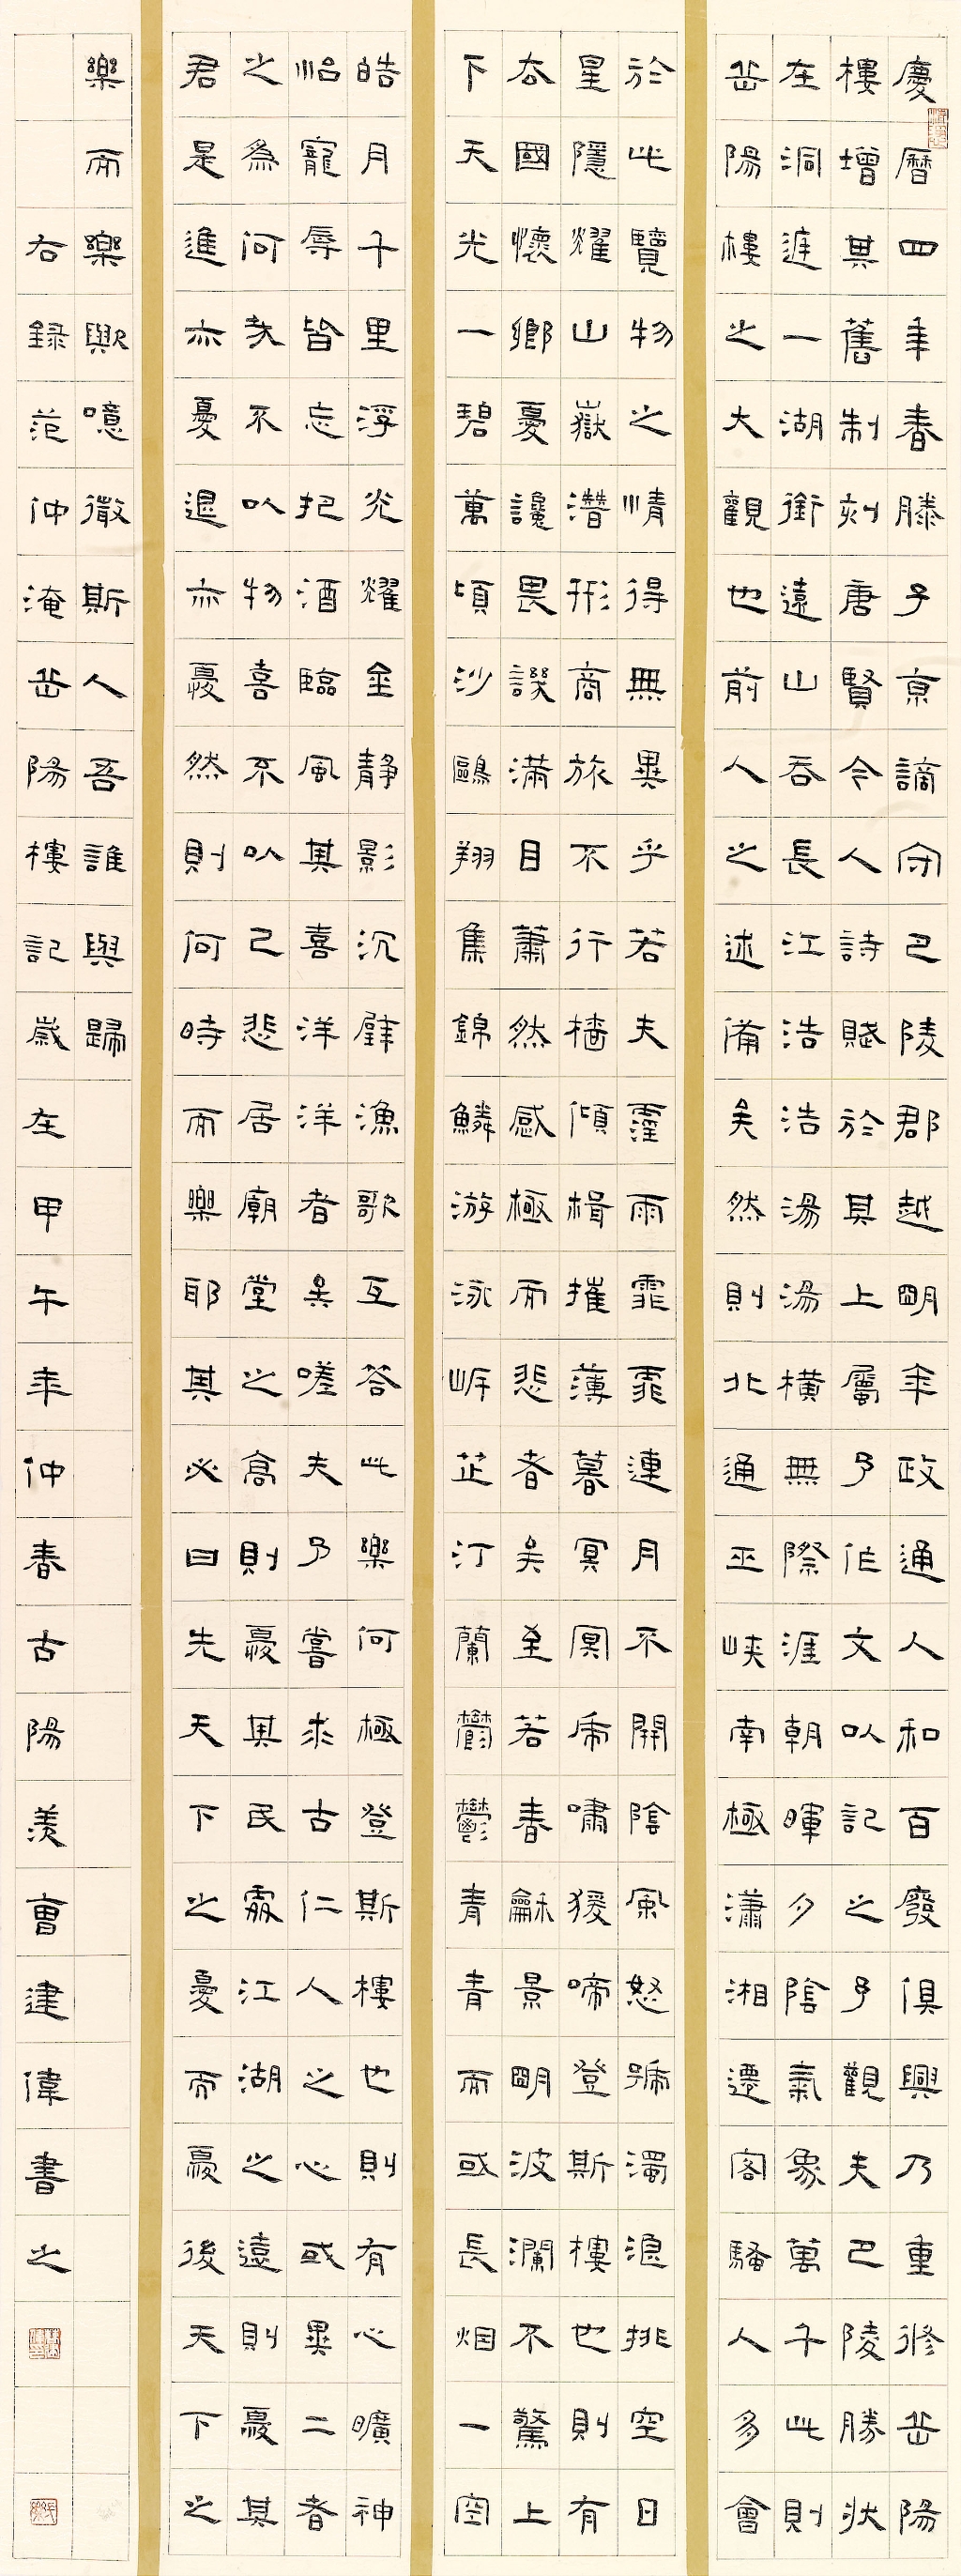 慶曆四年春滕子京謫守巴陵郡越明年政通人和百廢俱興乃重修岳陽
樓增其舊制刻唐賢今人詩賦於其上屬予作文以記之予觀夫巴陵勝狀
在洞庭一湖銜遠山吞長江浩浩湯湯橫無際涯朝暉夕陰氣象萬千此則
岳陽樓之大觀也前人之述備矣然則北通巫峽南極瀟湘遷客騷人多會
於此覽物之情得無異乎若夫霪雨霏霏連月不開陰風怒號濁浪排空日
星隱燿山嶽潛形商旅不行檣傾楫摧薄暮冥冥虎嘯猨啼登斯樓也則有
去國懷鄉憂讒畏譏滿目蕭然感極而悲者矣至若春龢景明波瀾不驚上
下天光一碧萬頃沙鷗翔集錦鱗游泳岸芷汀蘭鬱鬱青青而或長烟一空
皓月千里浮光燿金靜影沉璧漁歌互答此樂何極登斯樓也則有心曠神
怡寵辱皆忘把酒臨風其喜洋洋者矣嗟夫乃嘗求古仁人之心或異二者
之為何哉不以物喜不以己悲居廟堂之高則憂其民處江湖之遠則憂其
君是進亦憂退亦憂然則何時而樂耶其必曰先天下之憂而憂後天下之
樂而樂歟噫微斯人吾誰與歸
右錄范仲淹岳陽樓記歲在甲午年仲春古陽羨曹建偉書之